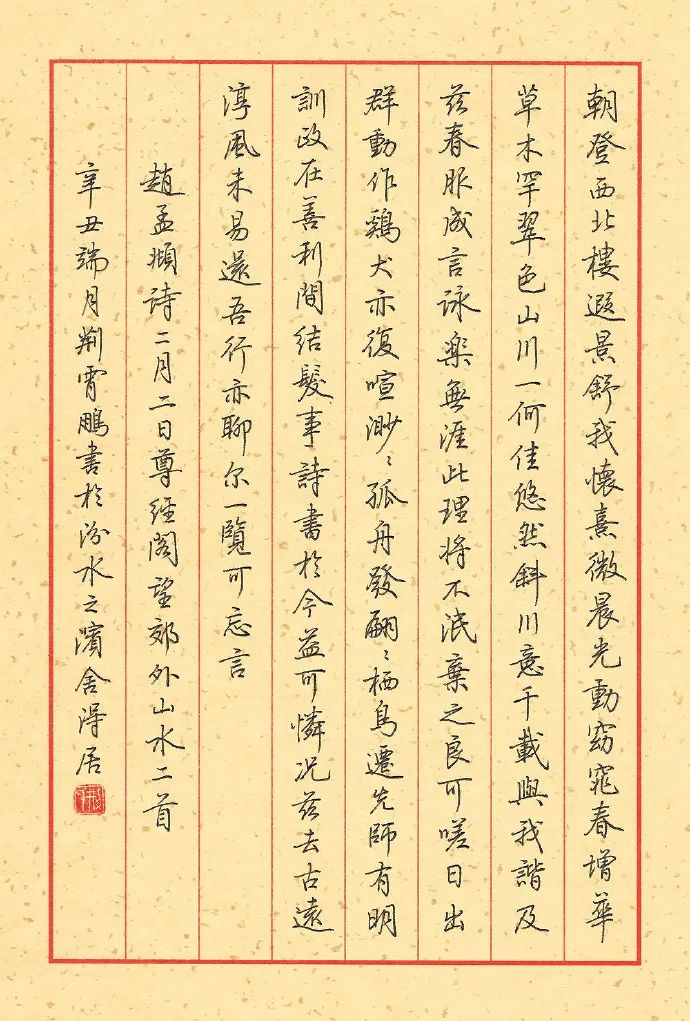 朝登西北樓遐景舒我懷熹微晨光動窈窕春增華
草木罕翠色山川一何佳悠然斜川意千載與我諧及
茲春服成言詠樂無涯此理将不泯棄之良可嗟日出
群動作鷄犬亦復喧渺〻孤舟發翩〻栖鳥遷先師有明
訓政在善利間結髮事詩書於今益可憐况茲去古遠
淳風未易還吾行亦聊尔一覽可忘言
趙孟頫詩二月二日尊經閣望郊外山水二首
辛丑端月荆霄鵬書於汾水之濱舍得居